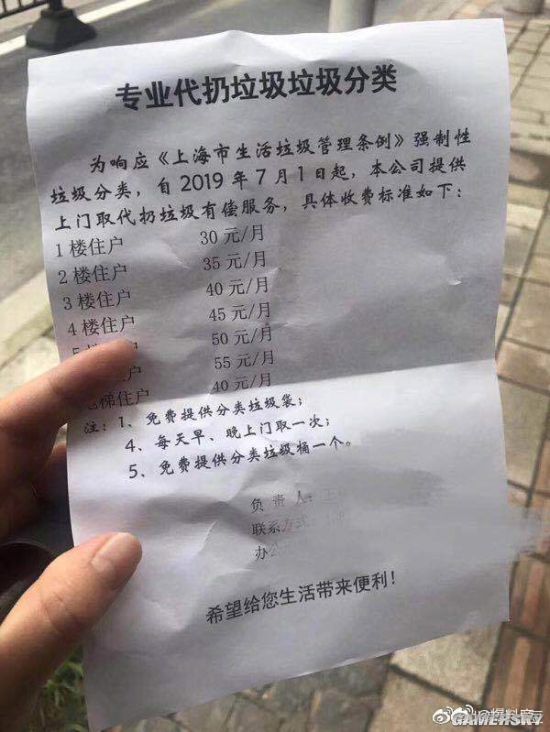 专业代扔垃圾垃圾分类
为响应《上海市生活垃圾管理条例》强制性
垃圾分类，自2019年7月1日起，本公司提供
上门取代扔垃圾有偿服务，具体收费标准如下：
1楼住户 30元/月
2楼住户 35元/月
3楼住户 40元/月
4楼住户 45元/月
50元/月
户 55元/月
梯住户 40元/月
注：1、免费提供分类垃圾袋；
4、每天早、晚上门取一次；
5、免费提供分类垃圾桶一个。
负责人：
联系方式：
办公
希望给您生活带来便利！
GAMERSKY